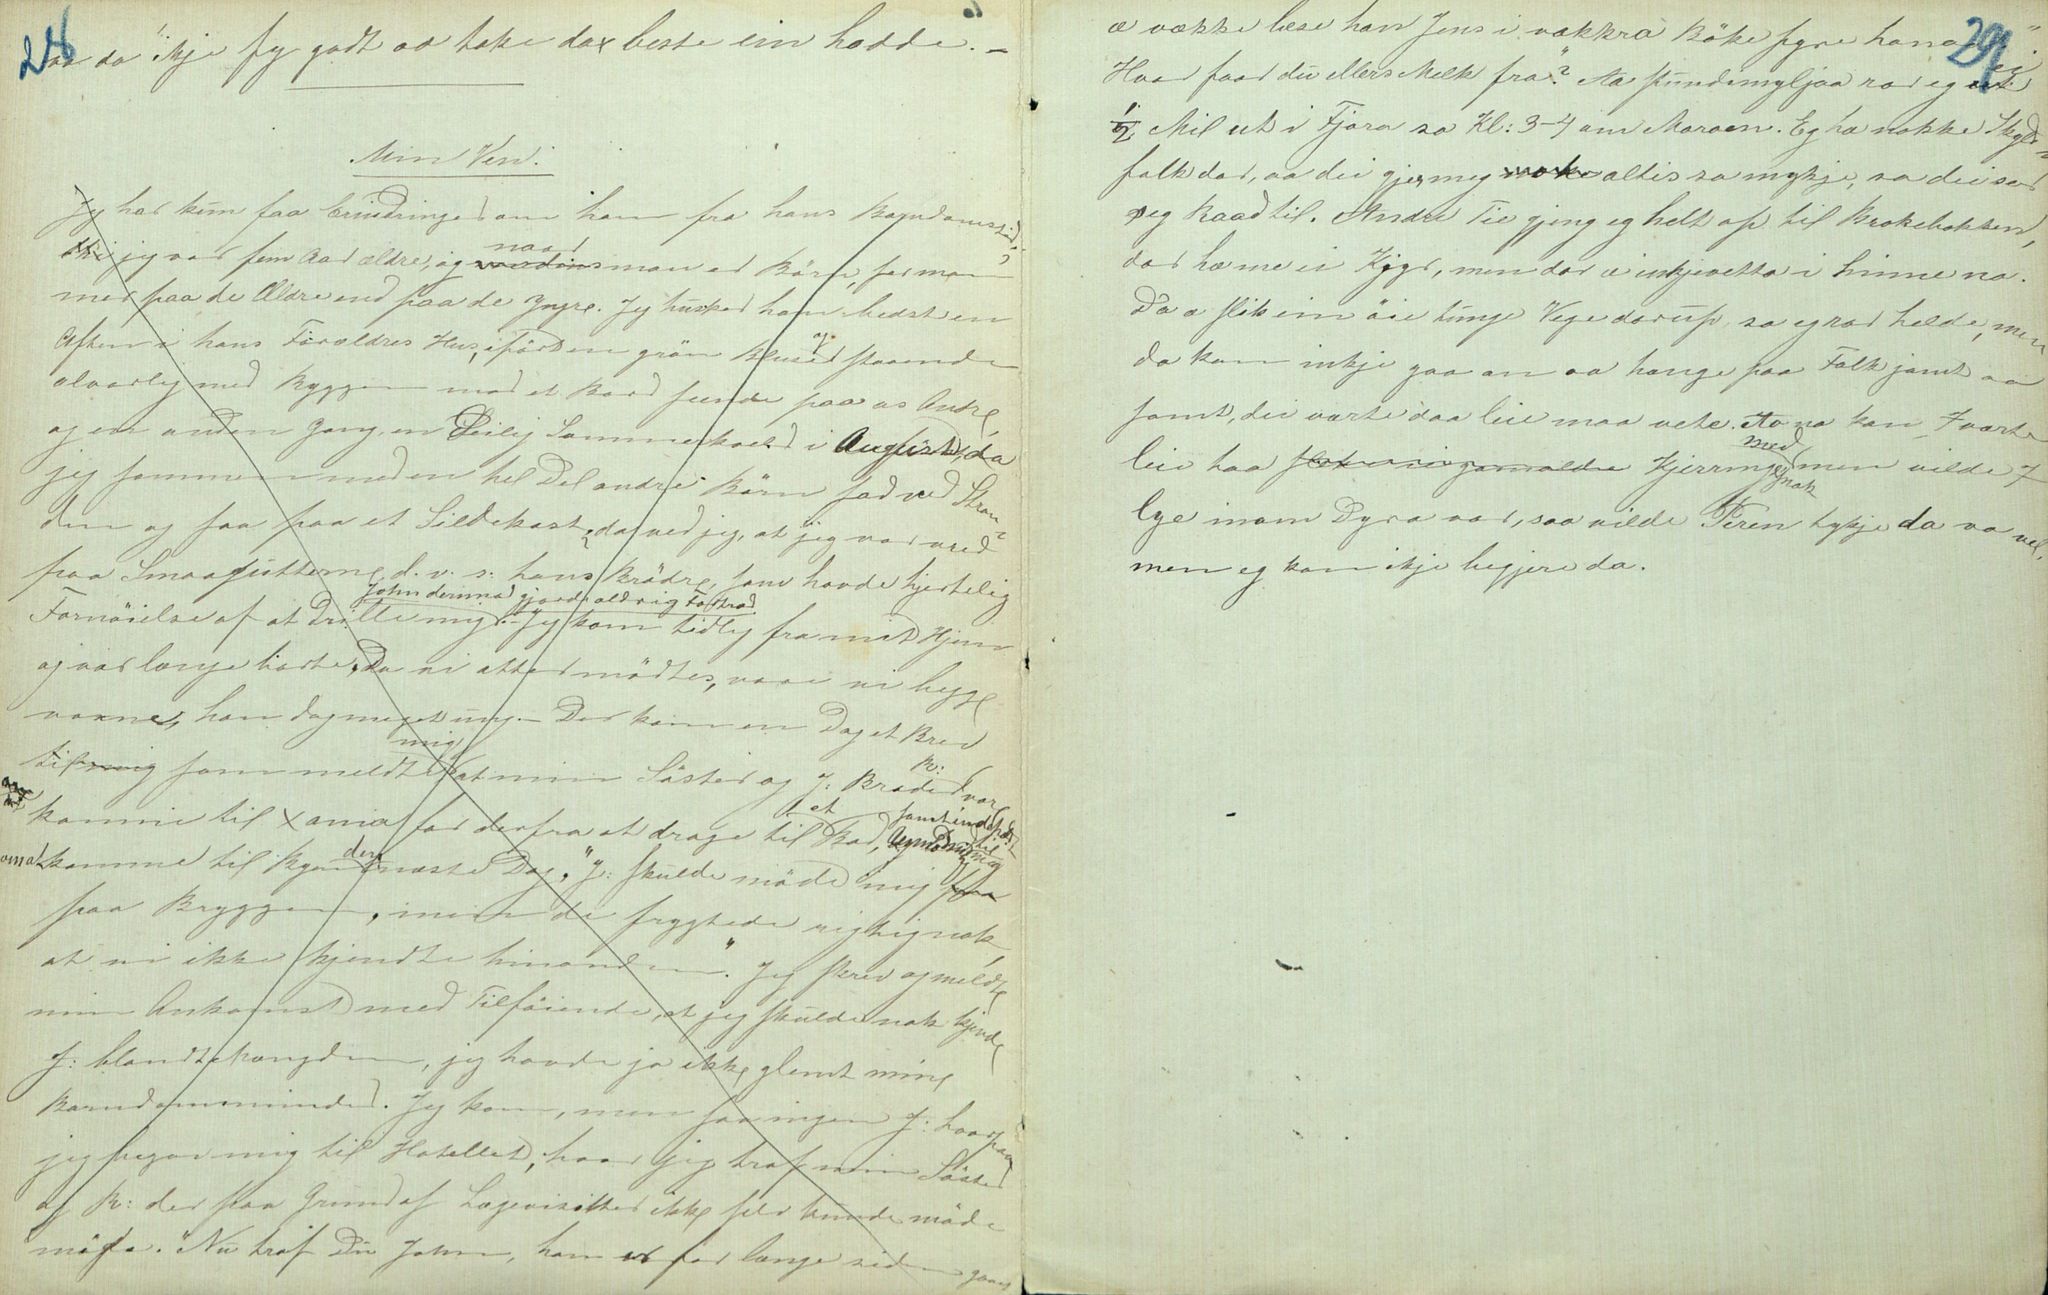 28
aa da ikje fy godt aa take dax beste ein hadde. –
Min Ven.
Jeg har kun faa Erindringer om ham fra hans Barndomstid,
thi jeg var fem Aar ældre, og naar man er Börn, ser man
mer paa de Ældre end paa de Yngre. Jeg husker ham bedst en
Aften i hans Forældres Hus, iført en grön Bluse og staaende
alvorlig med Ryggen mod et Bord seende paa os Andre,
og en anden Gang, en Deilig Sommerkveld i August, da
jeg sammen med en hel Del andre Börn sad ved Stran-
den og saa paa et Sildekast, da ved jeg, at jeg var vred
paa Smaagutterne, d. v. s: hans Brödre, som havde hjertelig
Fornöielse af at drille mig. John derimod gjorde aldrig Fortræd.
Jeg kom tidlig fra mit Hjem
og var længe borte. Da vi atter mödtes, vare vi begge
voxne, han dog meget ung. – Der kom en Dag et Brev
til mig som meldte mig at min Söster og J: Broder R: vare
komne til Xania for derfra at drage til et Bad,
om at komme til Byen den næste Dag. "J: skulde möde mig
paa Bryggen, men de frygtede rigtignok
at vi ikke kjendte hinanden." Jeg skrev og meldte
min Ankomst med Tilföiende, at jeg skulde nok kjende
J: blandt Mængden, jeg havde jo ikke glemt mine
Barndomsminder. Jeg kom, men saa ingen J: hvorpaa
jeg begav mig til Hotellet, hvor jeg traf min Söster
og R: der paa Grund af Lægevisitter ikke selv kunde möde
möde. "Nu traf Du John, han er for længe siden gaaet
29
æ vække lese han Jens i vakkra Böke fyre hana."
Hvor faar du ellers Melk fra? Aa stundimyljaa ror eg eit
1/2 Mil ut i Fjora so Kl: 3-4 um Maraen. Eg hæ nokke Skyld-
falk dar, aa dei gjer meg altis so mykje, so dei ser
seg Raad til. Andre Tie gjeng eg helt op til Brokebakken,
dar hæ me ei Kyr, men dar æ inkjevetta i hinne no.
Dæ æ slik ein öie tunge Vege darup, so eg ror helde, men
da kan inkje gaa an aa hange paa Falk jamt aa
samt, dei værte daa leie maa vete. Aa no kan I værte
leie taa Kjerringe med men vilde I
lye inom Dyra vor, saa vilde Peren tykje da va vel,
men eg kan ikje begjere da.